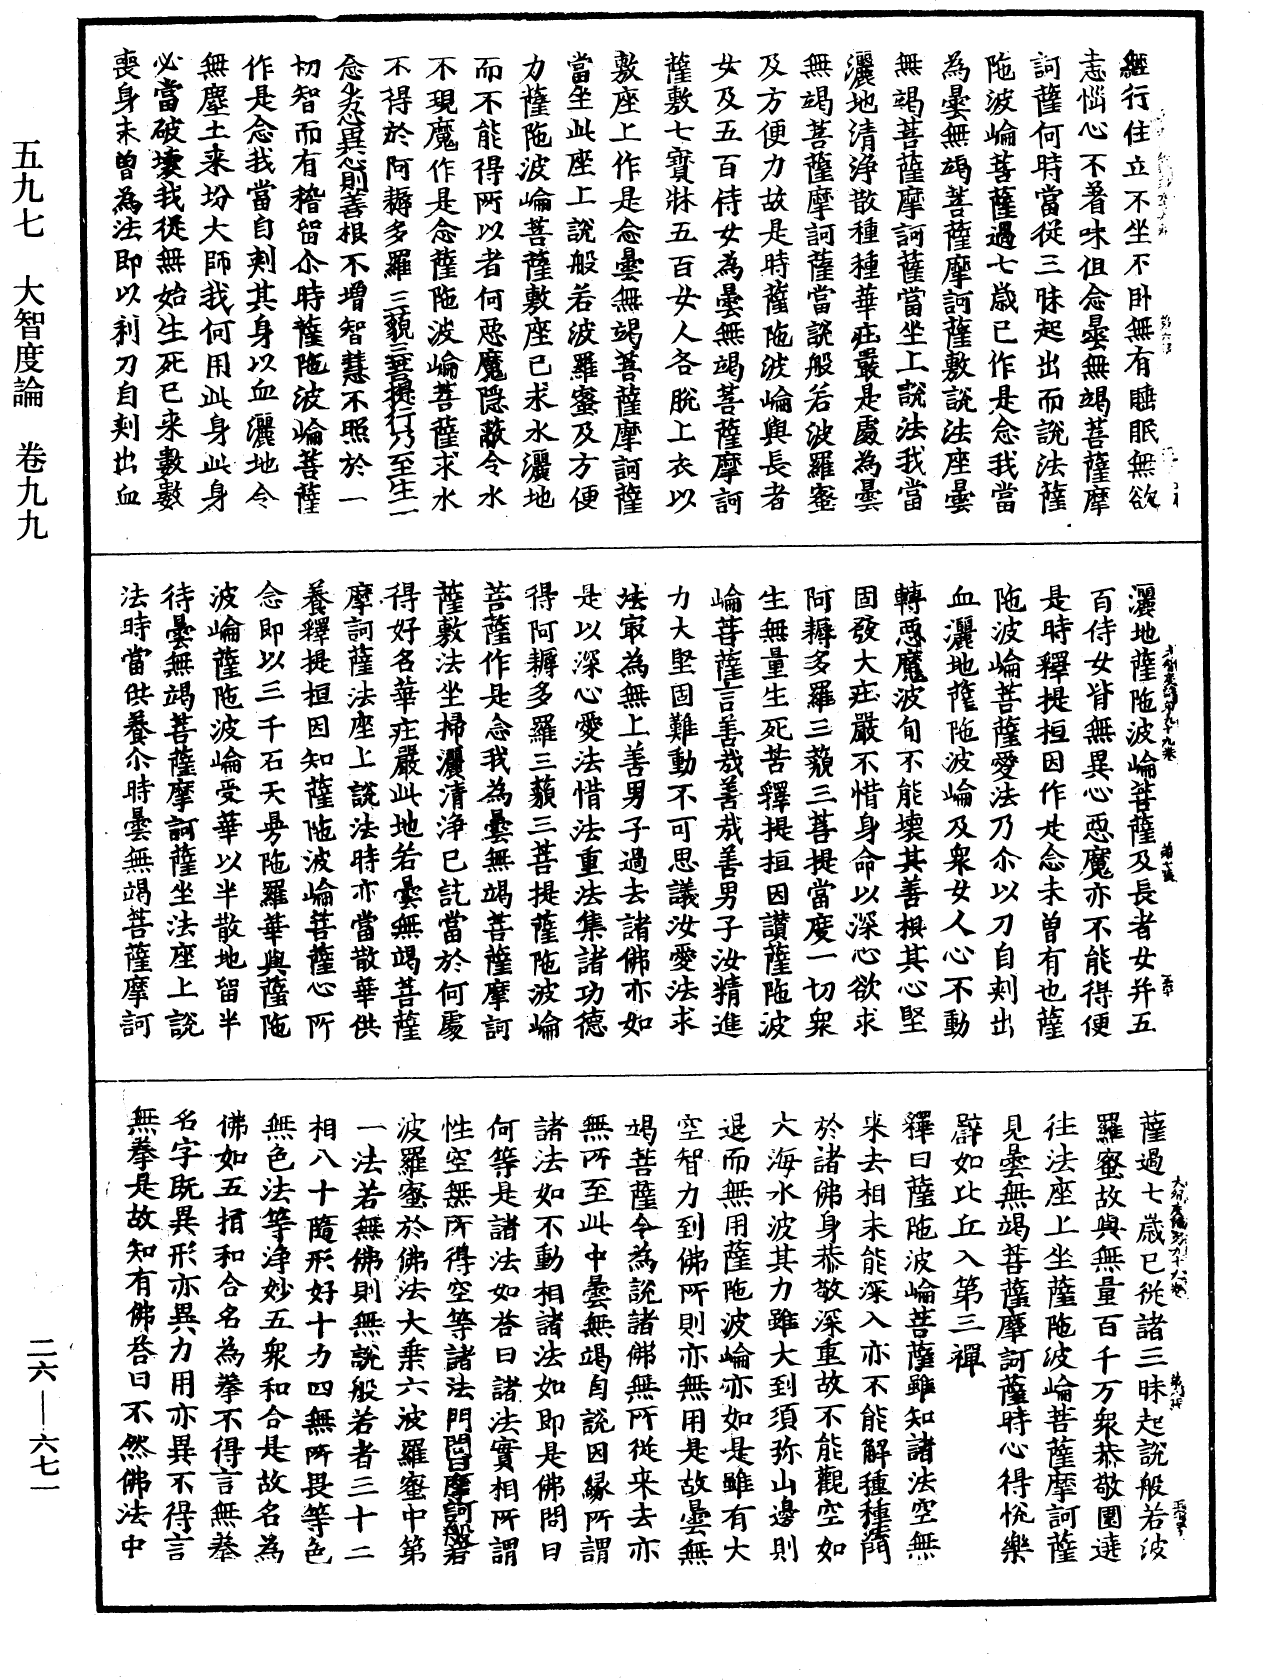 經行住立不坐不卧無有睡眠無欲
恚惱心不著味但念曇無竭菩薩摩
訶薩何時當從三昧起出而說法薩
陁波崘菩薩過七歲已作是念我當
為曇無竭菩薩摩訶薩敷說法座曇
無竭菩薩摩訶薩當坐上說法我當
灑地清淨散種種華莊嚴是處為曇
無竭菩薩摩訶薩當說般若波羅蜜
及方便力故是時薩陁波崘與長者
女及五百侍女為曇無竭菩薩摩訶
薩敷七寶牀五百女人各脫上衣以
敷座上作是念曇無竭菩薩摩訶薩
當坐此座上說般若波羅蜜及方便
力薩陁波崘菩薩敷座已求水灑地
而不能得所以者何惡魔隱蔽令水
不現魔作是念薩陁波崘菩薩求水
不得於阿耨多羅三藐三菩提行乃至生一
念劣心異心則善根不增智慧不照於一
切智而有稽留尒時薩陁波崘菩薩
作是念我當自刾其身以血灑地令
無塵土来坋大師我何用此身此身
必當破壞我從無始生死已来數數
喪身未曾為法即以利刀自刾出血
灑地薩陁波崘菩薩及長者女并五
百侍女皆無異心惡魔亦不能得便
是時釋提桓因作是念未曾有也薩
陁波崘菩薩愛法乃尒以刀自刾出
血灑地薩陁波崘及衆女人心不動
轉惡魔波旬不能壞其善根其心堅
固發大莊嚴不惜身命以深心欲求
阿耨多羅三藐三菩提當度一切衆
生無量生死苦釋提桓因讚薩陁波
崘菩薩言善哉善哉善男子汝精進
力大堅固難動不可思議汝愛法求
法㝡為無上善男子過去諸佛亦如
是以深心愛法惜法重法集諸功德
得阿耨多羅三藐三菩提薩陁波崘
菩薩作是念我為曇無竭菩薩摩訶
薩敷法坐掃灑清淨已訖當於何處
得好名華莊嚴此地若曇無竭菩薩
摩訶薩法座上說法時亦當散華供
養釋提桓因知薩陁波崘菩薩心所
念即以三千石天曼陁羅華與薩陁
波崘薩陁波崘受華以半散地留半
待曇無竭菩薩摩訶薩坐法座上說
法時當供養尒時曇無竭菩薩摩訶
薩過七歲已從諸三昧起說般若波
羅蜜故與無量百千万衆恭敬圍遶
往法座上坐薩陁波崘菩薩摩訶薩
見曇無竭菩薩摩訶薩時心得悅樂
譬如比丘入第三禪
釋曰薩陁波崘菩薩雖知諸法空無
来去相未能深入亦不能解種種諸門
於諸佛身恭敬深重故不能觀空如
大海水波其力雖大到須弥山邊則
退而無用薩陁波崘亦如是雖有大
空智力到佛所則亦無用是故曇無
竭菩薩今為說諸佛無所從来去亦
無所至此中曇無竭自說因緣所謂
諸法如不動相諸法如即是佛問曰
何等是諸法如荅曰諸法實相所謂
性空無所得空等諸法門問曰摩訶般若
波羅蜜於佛法大乘六波羅蜜中第
一法若無佛則無說般若者三十二
相八十隨形好十力四無所畏等色
無色法等淨妙五衆和合是故名為
佛如五指和合名為拳不得言無拳
名字既異形亦異力用亦異不得言
無拳是故知有佛荅曰不然佛法中
五九七　大智度論　卷九九
二六—六七一